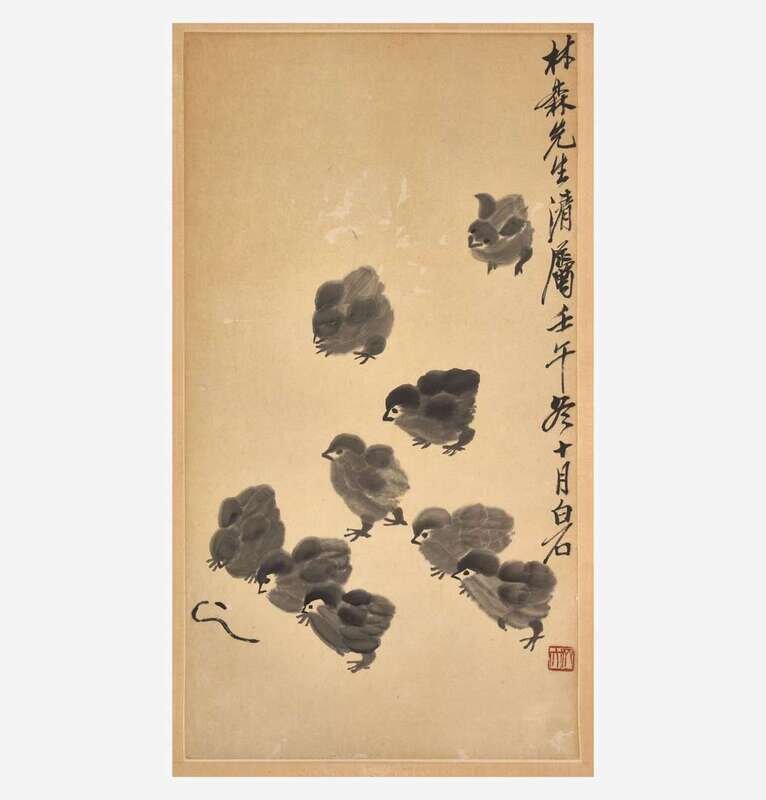 林森先生清屬壬午冬十月白石